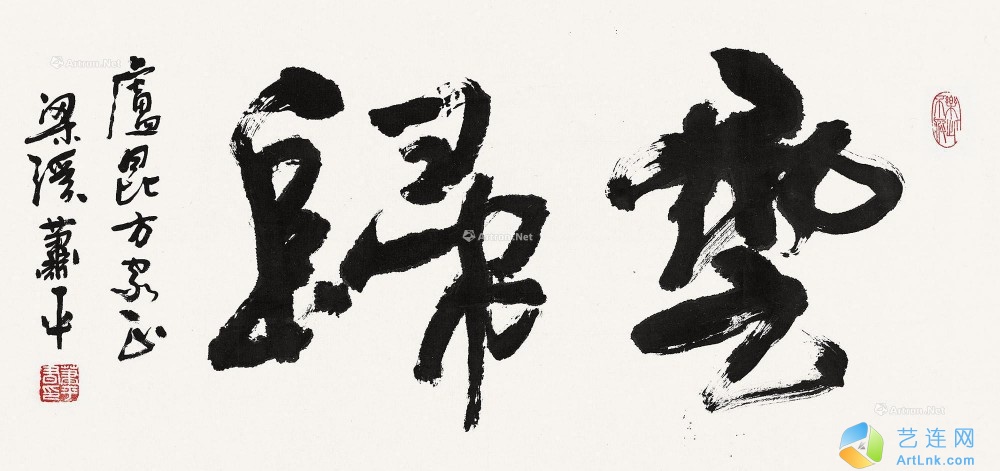 樂此不疲
雲歸
盧昆方家正
梁溪蕭平
蕭平書印
Artron.Net
Artron.Net
Artron.Net
艺连网
ArtLnk.com